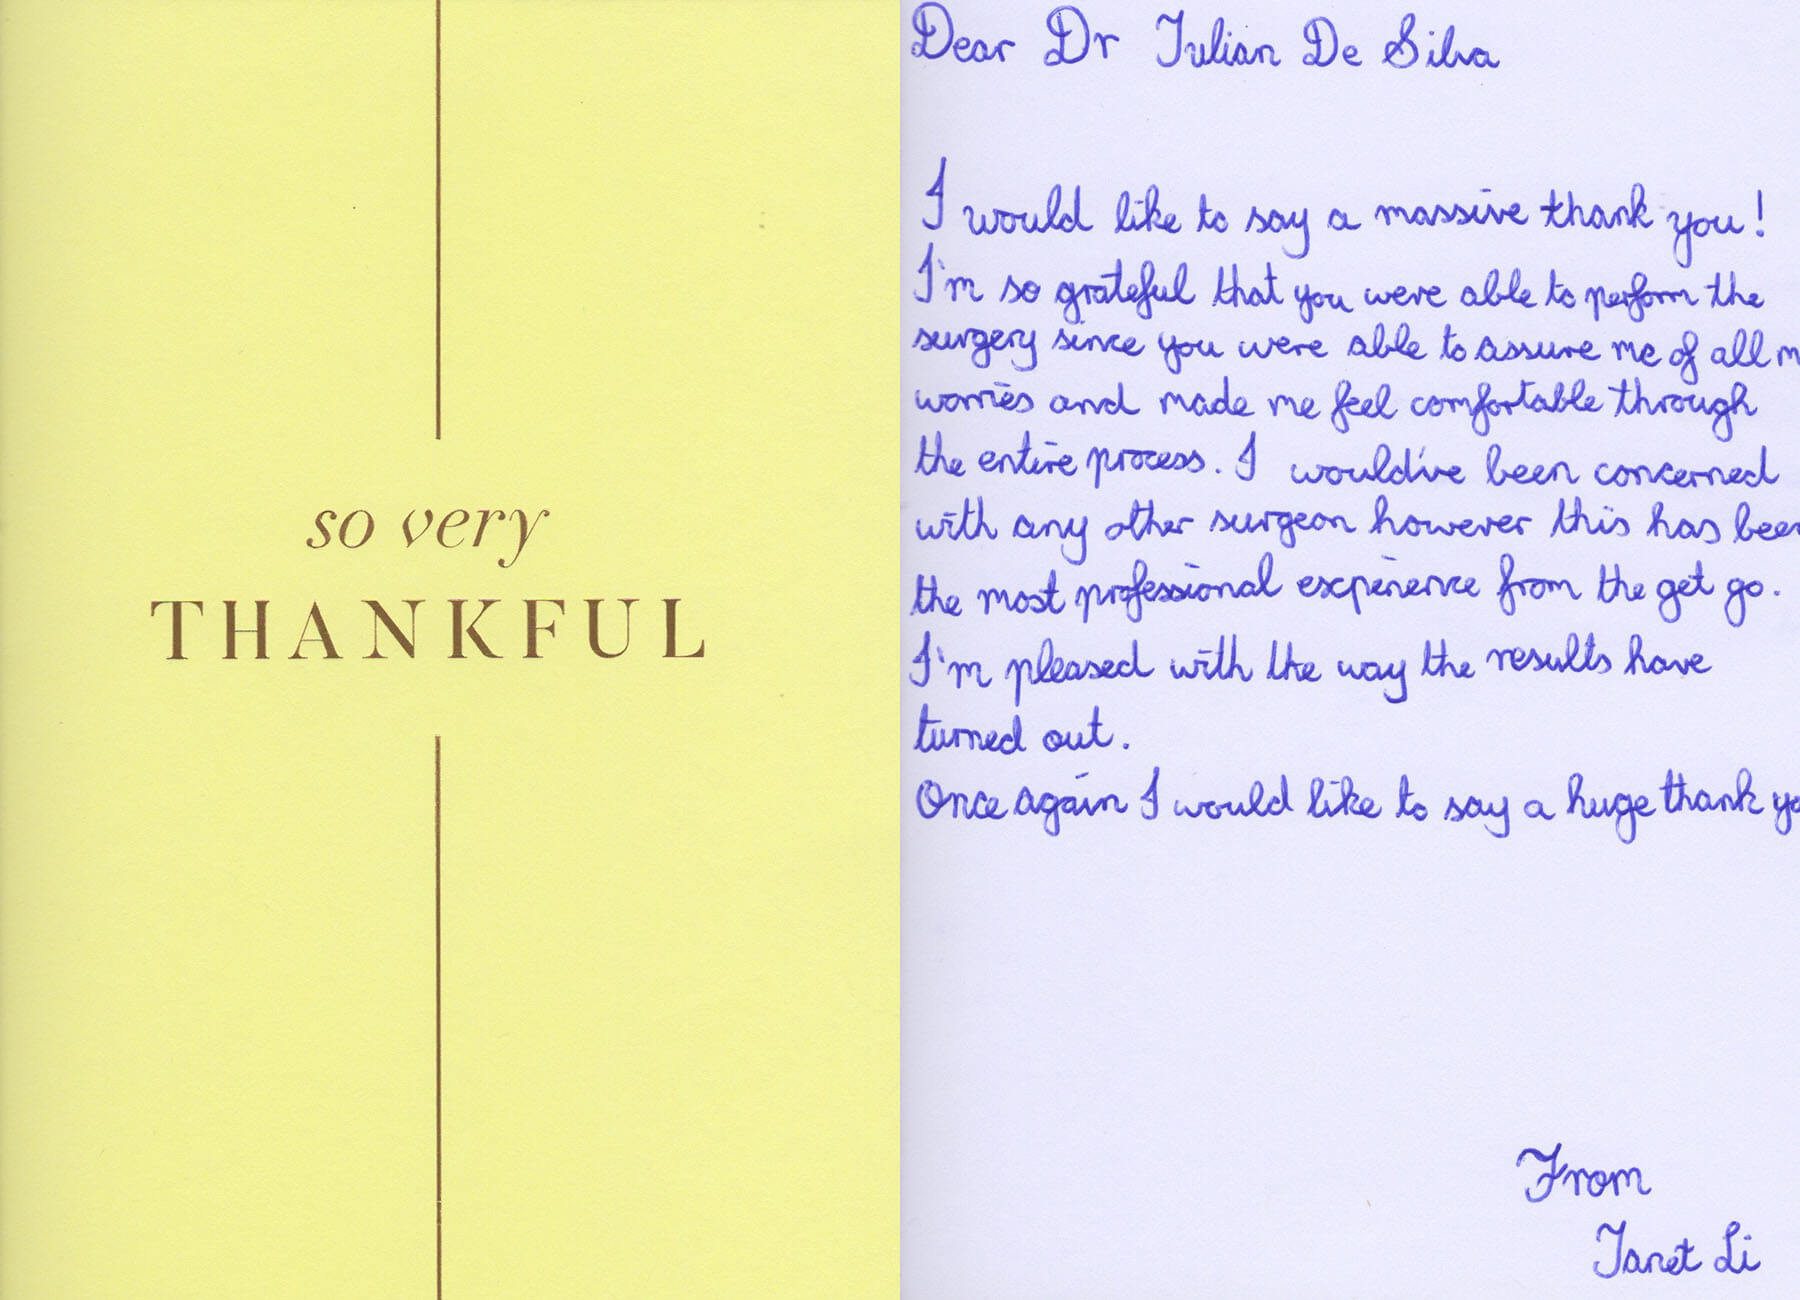 so very
THANKFUL
Dear Dr Julian De Silva
I would like to say a massive thank you!
I'm so grateful that you were able to perform the
surgery since you were able to assure me of all m
worries and made me feel comfortable through
the entire process. I would've been concerned
with any other surgeon however this has been
the most professional experience from the get go.
I'm pleased with the way the results have
turned out.
Once again I would like to say a huge thank yo
From
Janet Li